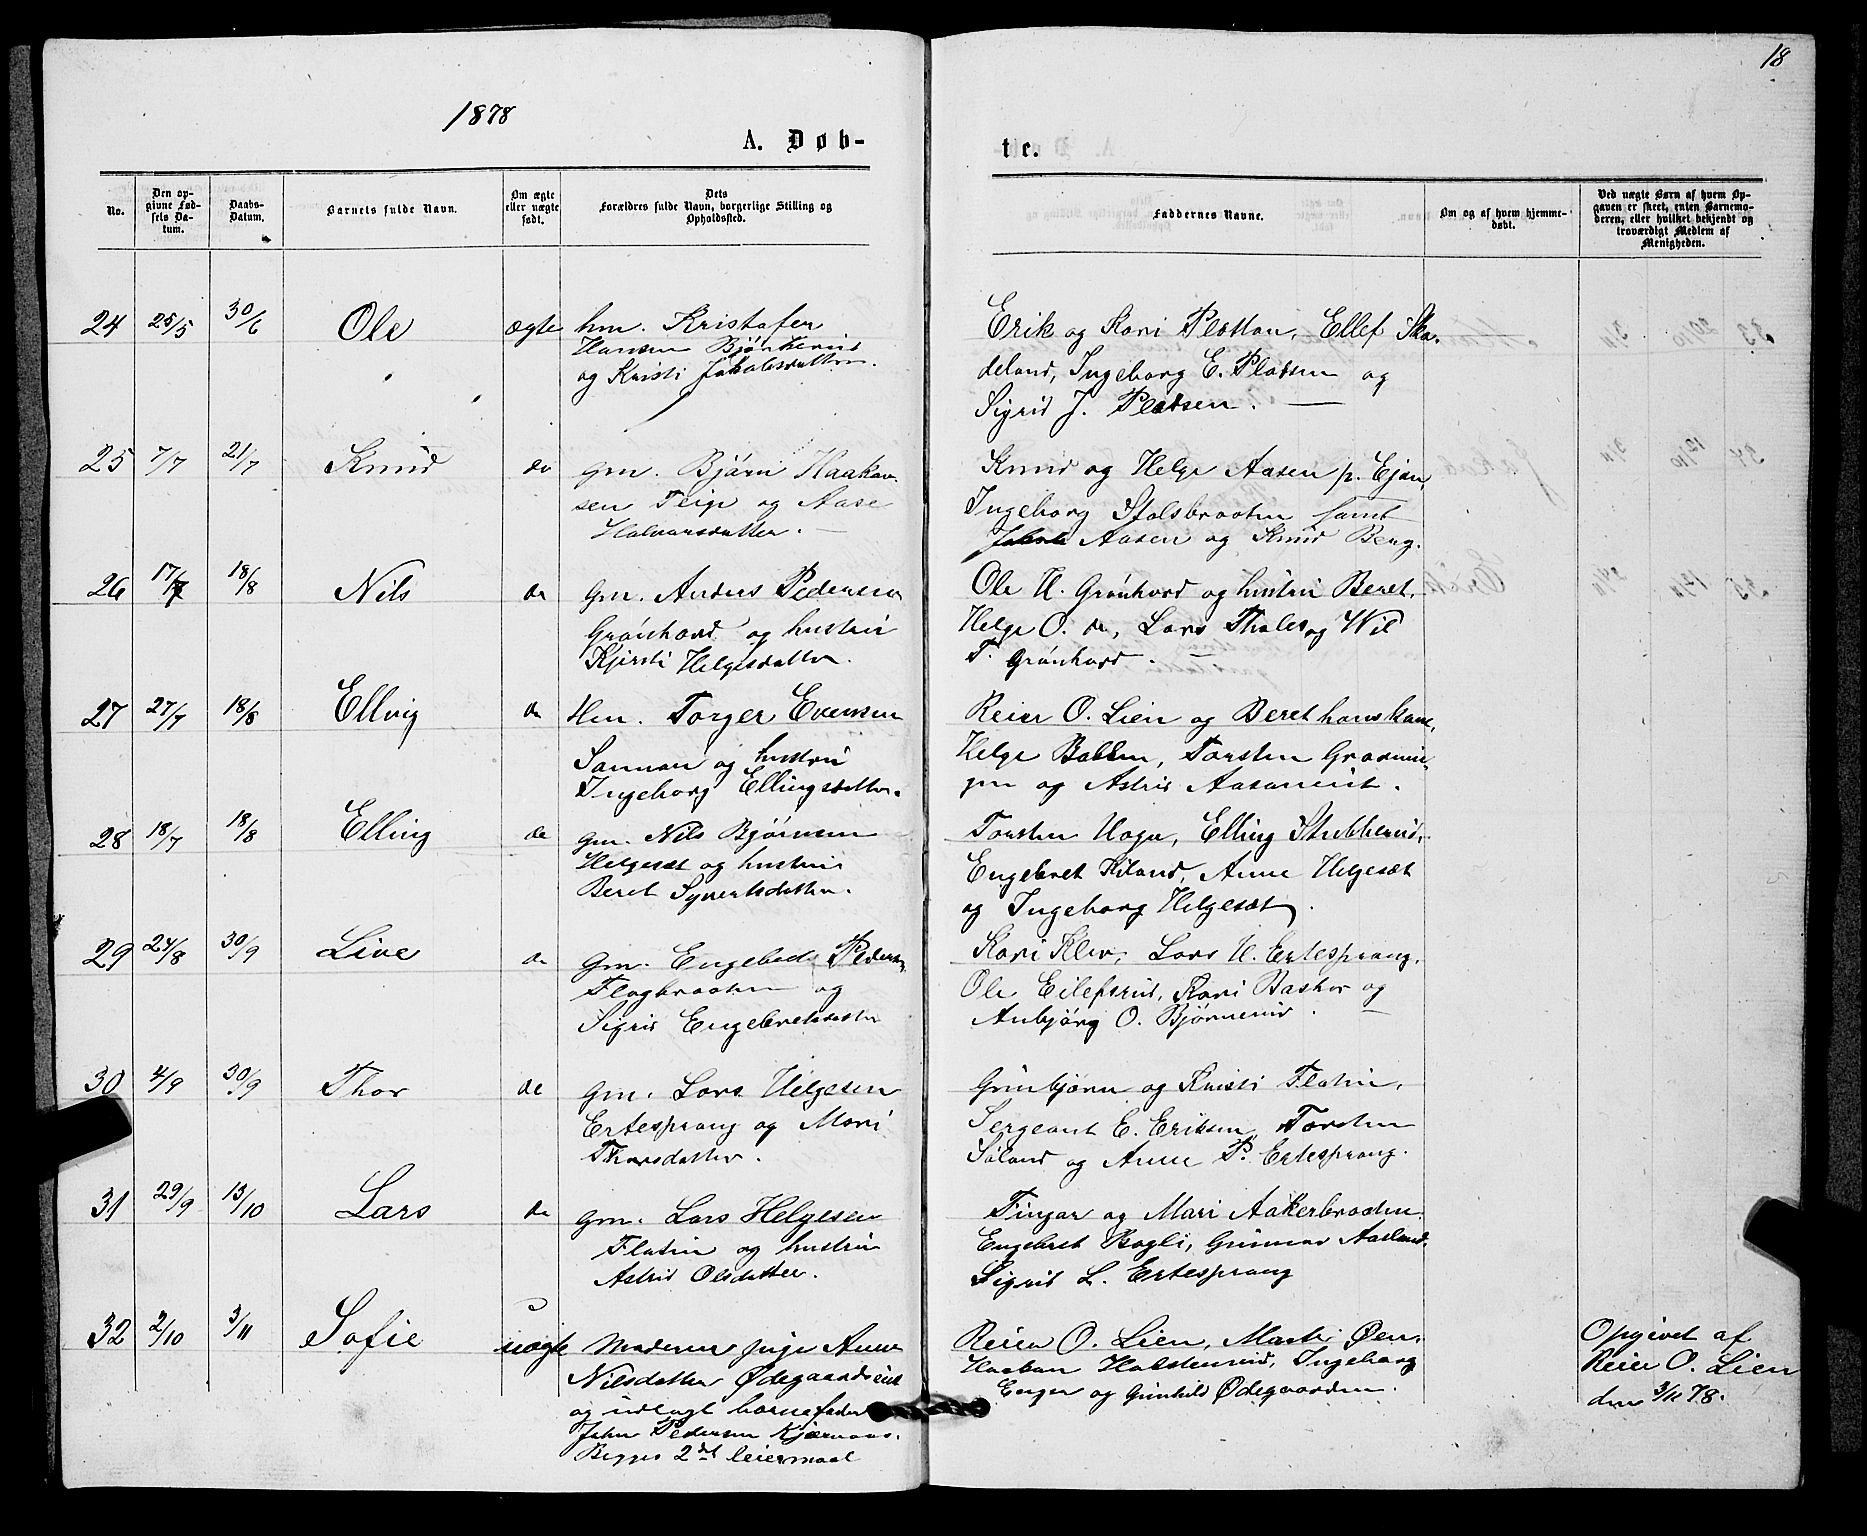 18
1878
A. Døb-
te.
No.
Den op-
givne Fød-
sels Da-
tum.
Daabs-
Datum.
Barnets fulde Navn.
Om ægte
eller uægte
født.
Dets
Forældres fulde Navn, borgerlige Stilling og
Opholdssted.
Faddernes Navne.
Om og af hvem hjemme-
døbt.
Ved uægte Børn af hvem Op-
gaven er skeet, enten Barnemo-
deren, eller hvilket bekjendt og
troværdigt Medlem af
Menigheden.
24 25/5 30/6 Ole ægte hm. Kristofer
Hansen Bjørkerud
og Kristi Jakobsdatter.
Erik og Kari Pladsen, Ellef Ska-
deland, Ingeborg E. Pladsen og
Sigrid J. Pladsen.
25 7/7 21/7 Knud do gm. Bjørn Haakon-
sen Feige og Aase
Halvorsdatter.
Knud og Helge Aasen p. Ejen,
Ingeborg Stolsbraaten samt
Aasen og Knud Berg.
26 17/7 18/8 Nils do gm. Anders Pedersen
Grønhovd og hustru
Kjersti Helgesdatter.
Ole H. Grønhovd og hustru Beret,
Helge O. do, Lars Tholes og
T. Grønhovd.
27 27/7 18/8 Ellvig do Hm. Torger Evensen
Sannan og hustru
Ingeborg Ellingsdatter.
Reier O. Lien og Beret hans kone,
Helge Bakken, Torsten
og Astrid
28 18/7 18/8 Elling do gm. Nils Bjørnsen
Helgeset og hustru
Beret Syvertsdatter.
Torsten Haga, Elling Stubberud,
Engebret Kiland, Anne Helgesæt
og Ingeborg Helgesæt.
29 24/8 30/9 Live do gm. Engebret Pedersen
Flagbraaten og
Sigrid Engebretsdatter
Kari Klev, Lars H. Ertesprang,
Ole Eilefsrud, Kari Basher og
Anbjørg O. Bjørnerud.
30 4/9 30/9 Thor do gm. Lars Helgesen
Ertesprang og Mari
Thorsdatter.
Grimbjørn og Kristi Flatin,
Sergeant E. Eriksen, Torsten
Søland og Anne P. Ertesprang.
31 29/9 13/10 Lars do gm. Lars Helgesen
Flatin og hustru
Astrid Olsdatter.
Fingar og Mari Aakerbraaten,
Engebret Bagli, Gunnar Aasland,
Sigrid L. Ertesprang
32 2/10 3/11 Sofie uægte Moderen pige Anne
Nilsdatter Ødegaardseiet
og udlagt barnefader
John Pedersen
Begges 2det leiermaal
Reier O. Lien, Marti Øen,
Haakon Holstenrud, Ingeborg
Enger og Gunhild Ødegaarden.
Opgivet af
Reier O. Lien
den 3/11 78.